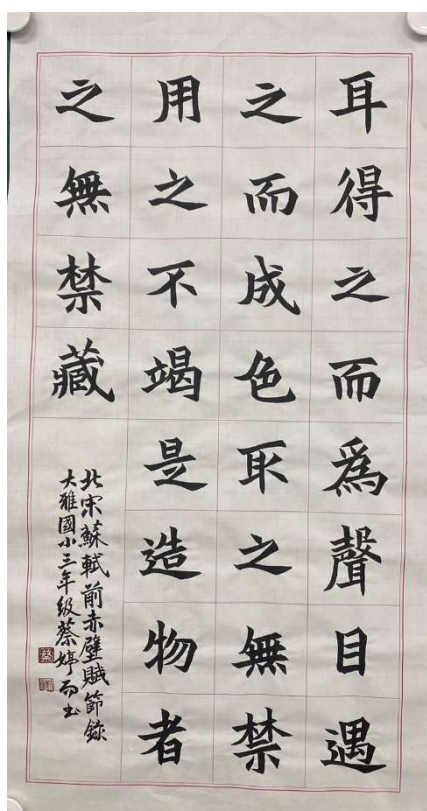 耳得之而為聲目遇
之而成色取之無禁
用之不竭是造物者
之無禁藏
北宋蘇軾前赤壁賦節錄
大雅國小三年級蔡婷而书
蔡